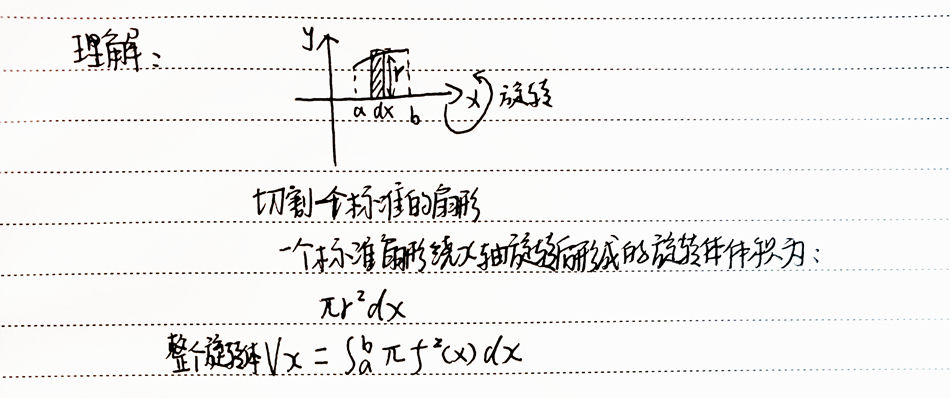 理解：
y
r
a dx b x 旋转
切割一个标准的扇形
一个标准扇形绕x轴旋转后形成的旋转体体积为：
πr²dx
整个旋转体Vx = ∫ₐᵇ π f²(x) dx